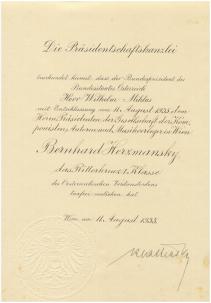 Die Präsidentschaftskanzlei
beurkundet hiemit, dass der Bundespräsident des
Bundesstaates Österreich
Herr Wilhelm Miklas
mit Entschliessung vom 11. August 1933 dem
Herrn Präsidenten der Gesellschaft der Kom
ponisten, Autoren und Musikverleger in Wien
Bernhard Herzmansky
das Ritterkreuz I. Klasse
des Österreichischen Verdienstordens
taxfrei verliehen hat.
Wien, am 11. August 1933.